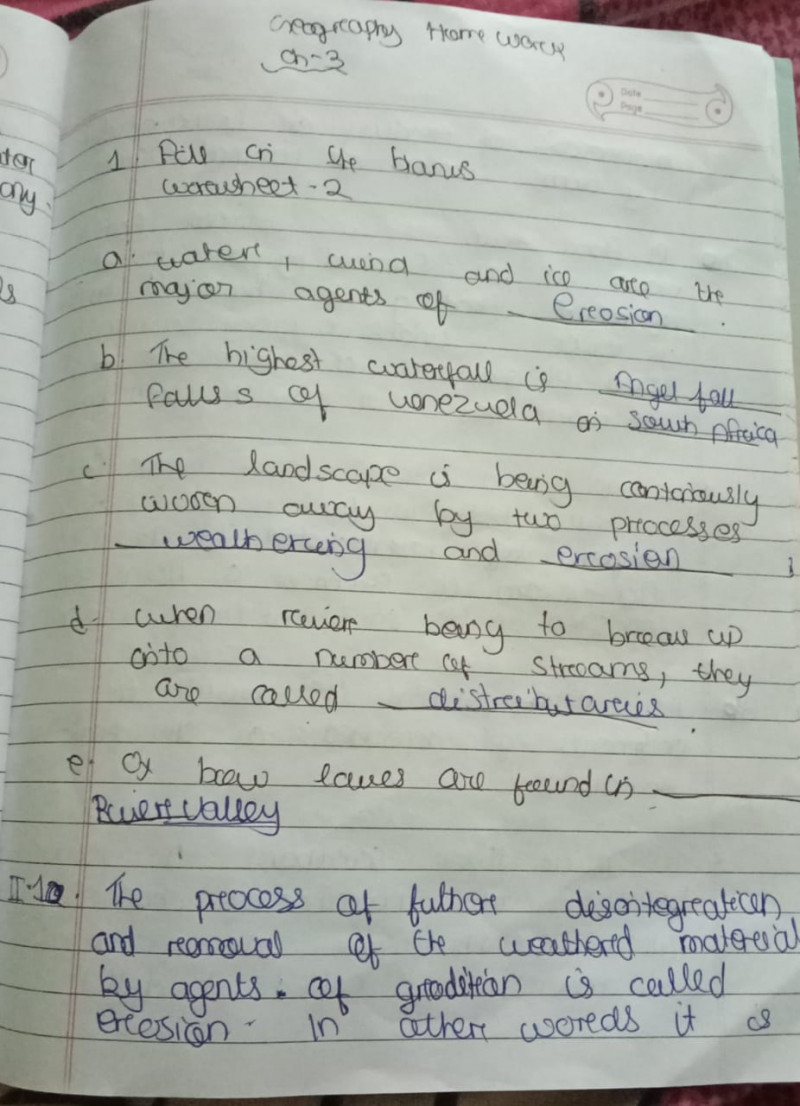 Geography Home Work
Ch-3
Date
Page
tor
any.
1. Fill in the blanks
Worksheet - 2
a. water, wind and ice are the
major agents of Erosion.
b. The highest waterfall is Angel fall
Falls of venezuela in South Africa
c. The landscape is being continiously
woren away by two processes
weathering and erosion ;
d. when rivers being to break up
into a number of streams, they
are called distreibutaries.
e. Ox bow lakes are found in
River Valley
II.1. The process of futhore disintegreation
and removal of the weathered material
by agents. of gradition is called
erosion. In other woreds it is